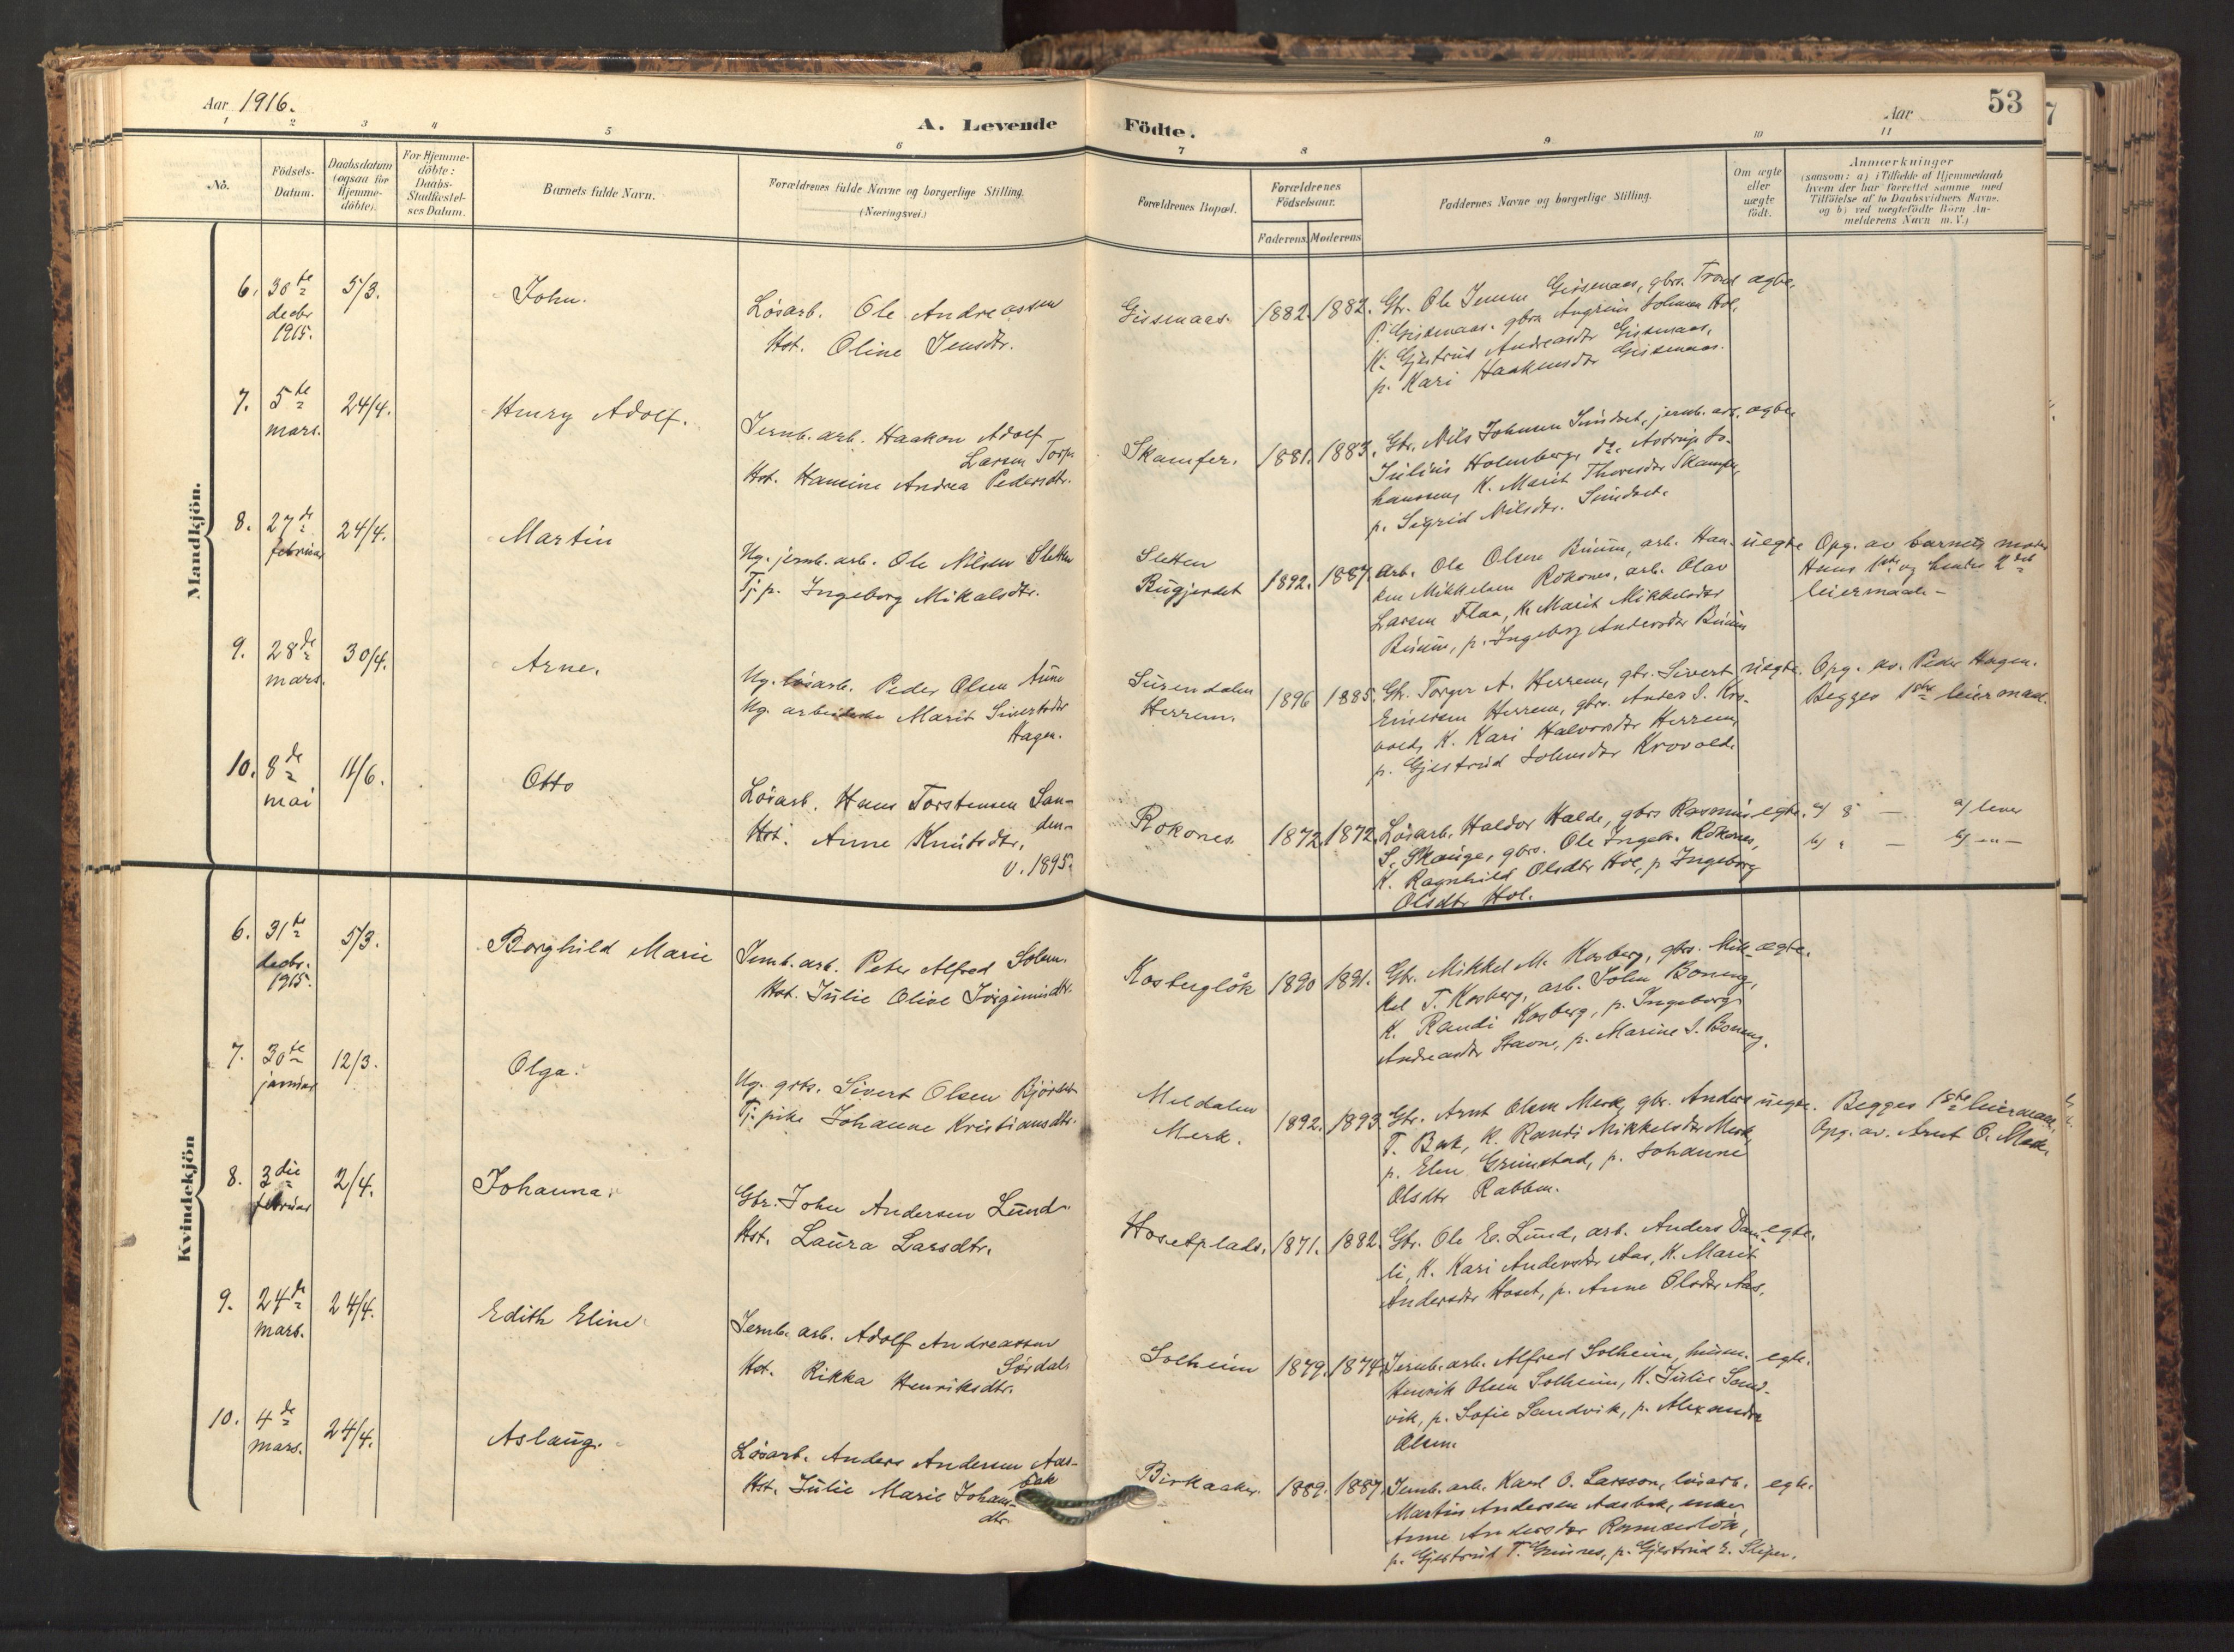 Aar 1916.
A. Levende
Födte.
Aar
53
1 2 3 4 5 6 7 8 9 10 11
No.
Födsels-
Datum.
Daabsdatum
(ogsaa for
Hjemme-
döbte).
For Hjemme-
döbte:
Daabs-
Stadfæstel-
ses Datum.
Barnets fulde Navn.
Forældrenes fulde Navne og borgerlige Stilling.
(Næringsvei.)
Forældrenes Bopæl.
Forældrenes
Födselsaar.
Faderens. Moderens
Faddernes Navne og borgerlige Stilling.
Om ægte
eller
uægte
födt.
Anmærkninger
(saasom: a) i Tilfælde af Hjemmedaab
hvem der har forrettet samme med
Tilföielse af to Daabsvidners Navne.
og b) ved uægtefödte Börn An-
melderens Navn m. V.)
Mandkjön.
6. 30te decbr 1915. 5/3. John.
Løsarb. Ole Andreassen
Hst. Oline Jensdtr.
Gissmaas. 1882. 1882.
Gbr. Ole Jensen Gissmaas, gbrs. Trond
P. Gissmaas, gbrs. Angrim Solmen Hol,
K. Gjertrud Andreasdtr Gissmaas,
p. Kari Haakensdtr Gissmaas.
ægte.
7. 5te mars. 24/4. Henry Adolf.
Jernb. arb. Haakon Adolf
Larsen Torp
Hst. Hansine Andrea Pedersdtr.
Skamfer. 1881. 1883.
Gbr. Nils Johnsen Sundset, jernb. arb.
Julius Holmberg, do. Astrup Jo-
hansen, K. Marit Thoresdtr Skamfer,
p. Sigrid Nilsdtr. Sundset.
ægte
8. 27de februar 24/4. Martin
Ug. jernb. arb. Ole Nilsen Sletten
Tj. p. Ingeborg Mikalsdtr.
Sletten
Bugjerdet 1892. 1887.
Arb. Ole Olsen Buum, arb. Haa-
ken Mikkelsen Rokones, arb. Olav
Larsen Flaa, K. Marit Mikkelsdtr
Buum, p. Ingeborg Andersdtr Buum
uegte
Opg. av barnets moder
Hans 1ste og hendes 2det
leiermaal -
9. 28de mars. 30/4. Arne.
Ug. løsarb. Peder Olsen Aune
Ug. arbeiderske Marit Sivertsdtr
Hagen.
Surendalen
Herrem. 1896 1885.
Gbr. Torger A. Herrem, gbr. Sivert
Einersen Herrem, gbrs. Anders J. Kro-
vold, K. Kari Halvorsdtr Herrem,
p. Gjertrud Johnsdtr Krovold.
uegte.
Opg. av. Peder Hagen.
Begges 1ste leiermaal.
10. 8de mai 11/6. Otto
Løsarb. Hans Torstensen San-
den
Hst. Anne Knutsdtr,
v. 1895.
Rokones. 1872. 1872.
Løsarb. Haldor Halde, gbrs Rasmus
S. Skauge, gbrs. Ole Ingebr. Rokones,
K. Ragnhild Olsdtr Hol, p. Ingeborg
Olsdtr Hol.
egte.
a) 8 — a) lever
b) „ — b) -„-
Kvindekjön
6. 31te decbr. 1915. 5/3. Borghild Marie
Jernb. arb. Peter Alfred Solem.
Hst. Julie Olive Jørginusdtr.
Kosberglök 1890 1891.
Gbr. Mikkel M. Kosberg, gbrs. Mik-
kel T. Kosberg, arb. John Boneng,
K. Randi Kosberg, p. Ingeborg
Andreasdtr Stavne, p. Marine J. Boneng.
ægte.
7. 30te januar 12/3. Olga.
Ug. grbs. Sivert Olsen Bjørset
Tj. pike Johanne Kristiansdtr.
Meldalen
Merk. 1892. 1893.
Gbr. Arnt Olsen Merk, gbr. Anders
T. Bak, K. Randi Mikkelsdtr Merk,
p. Elen Grimstad, p. Johanne
Olsdtr Rabben.
uegte.
Begges 1ste leiermaal.
Opg. av. Arnt O. Merk.
8. 3die februar 2/4. Johanna.
Gbr. John Andersen Lund
Hst. Laura Larsdtr.
Hosetplads. 1871. 1882.
Gbr. Ole E. Lund, arb. Anders Dam-
li, K. Kari Andersdtr Aas, K. Marit
Andersdtr Hoset, p. Anne Olsdtr Aas.
egte.
9. 24de mars. 24/4. Edith Eline
Jernb. arb. Adolf Andreassen
Sørdal
Hst. Rikka Henriksdtr.
Solheim 1879. 1874.
Jernb. arb. Alfred Solheim, husm.
Henrik Olsen Solheim, K. Julie Sand-
vik, p. Sofie Sandvik, p. Alexandra
Olsen.
egte.
10. 4de mars. 24/4. Aslaug.
Løsarb. Anders Andersen Aas-
bak
Hst. Julie Marie Johans-
dtr.
Birkaaker. 1889. 1887.
Jernb. arb. Karl O. Larsson, løsarb.
Martin Andersen Aasbak, enke
Anne Andersdtr
p. Gjertrud T. Grinnes, p. Gjertrud E. Skiper.
egte.